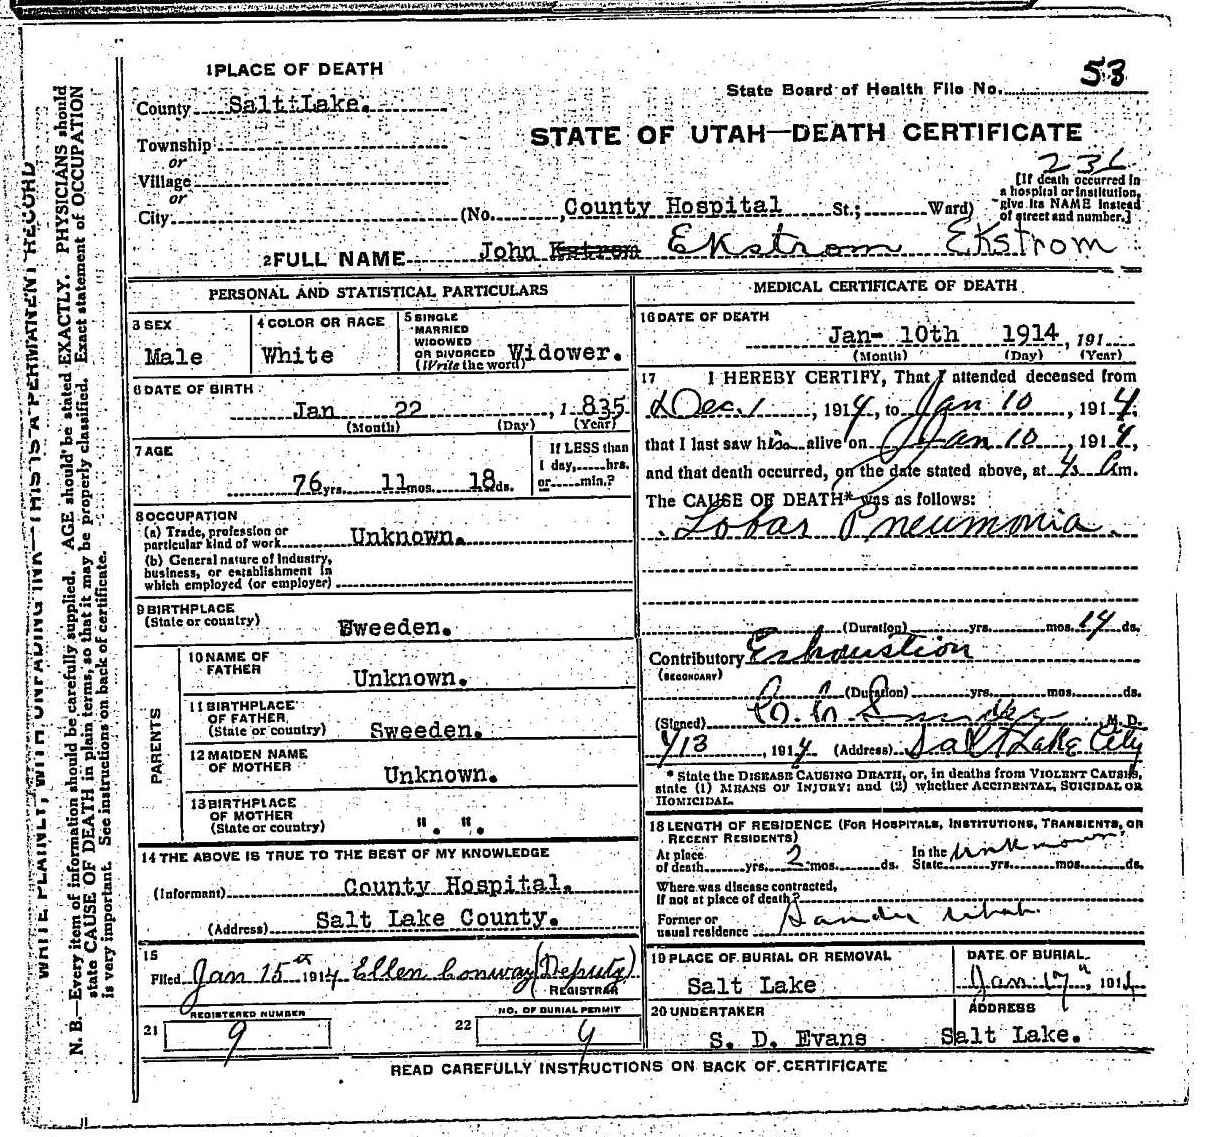 53
1 PLACE OF DEATH
State Board of Health File No.
County Salt Lake.
STATE OF UTAH—DEATH CERTIFICATE
Township
or
Village
or
City (No. County Hospital St.; Ward)
[If death occurred in a hospital or institution, give its NAME instead of street and number.]
2 FULL NAME John Ekstrom Ekstrom
PERSONAL AND STATISTICAL PARTICULARS
3 SEX Male
4 COLOR OR RACE White
5 SINGLE MARRIED WIDOWED OR DIVORCED (Write the word) Widower.
6 DATE OF BIRTH
Jan 22, 1835
(Month) (Day) (Year)
7 AGE
76 yrs. 11 mos. 18 ds.
If LESS than 1 day, hrs. or min.?
8 OCCUPATION
(a) Trade, profession or particular kind of work Unknown.
(b) General nature of Industry, business, or establishment in which employed (or employer)
9 BIRTHPLACE
(State or country) Sweeden.
PARENTS
10 NAME OF FATHER Unknown.
11 BIRTHPLACE OF FATHER (State or country) Sweeden.
12 MAIDEN NAME OF MOTHER Unknown.
13 BIRTHPLACE OF MOTHER (State or country) ". ".
14 THE ABOVE IS TRUE TO THE BEST OF MY KNOWLEDGE
(Informant) County Hospital.
(Address) Salt Lake County.
15
Filed Jan 15th 1914 Ellen Conway (Deputy)
REGISTRAR
REGISTERED NUMBER
21 9
NO. OF BURIAL PERMIT
22
MEDICAL CERTIFICATE OF DEATH
16 DATE OF DEATH
Jan- 10th 1914, 191
(Month) (Day) (Year)
17 I HEREBY CERTIFY, That I attended deceased from
Dec. 1, 1914, to Jan 10, 1914,
that I last saw him alive on Jan 10, 1914,
and that death occurred, on the date stated above, at m.
The CAUSE OF DEATH* was as follows:
Lobar Pneumonia
(Duration) yrs. mos. 14 ds.
Contributory Exhaustion
(SECONDARY)
(Duration) yrs. mos. ds.
(Signed) M. D.
1/13, 1914 (Address) Salt Lake City
* State the DISEASE CAUSING DEATH, or, in deaths from VIOLENT CAUSES, state (1) MEANS OF INJURY; and (2) whether ACCIDENTAL, SUICIDAL OR HOMICIDAL.
18 LENGTH OF RESIDENCE (FOR HOSPITALS, INSTITUTIONS, TRANSIENTS, OR RECENT RESIDENTS)
At place of death yrs. 2 mos. ds. In the State unknown yrs. mos. ds.
Where was disease contracted, if not at place of death?
Former or usual residence
19 PLACE OF BURIAL OR REMOVAL
Salt Lake
DATE OF BURIAL
Jan 17", 1914
20 UNDERTAKER
S. D. Evans
ADDRESS
Salt Lake.
READ CAREFULLY INSTRUCTIONS ON BACK OF CERTIFICATE
WRITE PLAINLY, WITH UNFADING INK—THIS IS A PERMANENT RECORD
N. B.—Every item of information should be carefully supplied. AGE should be stated EXACTLY. PHYSICIANS should
state CAUSE OF DEATH in plain terms, so that it may be properly classified. Exact statement of OCCUPATION
is very important. See instructions on back of certificate.